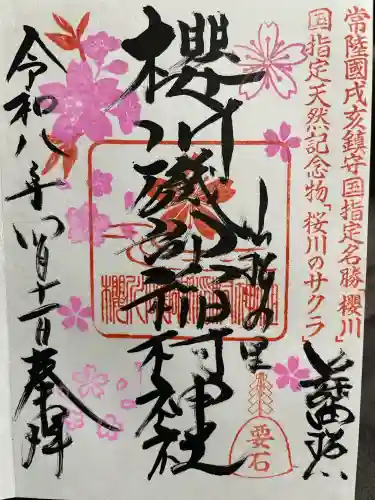 常陸國戌亥鎮守国指定名勝櫻川
国指定天然記念物「桜川のサクラ」
櫻川磯部稲村神社
山桜の里
要石
令和八年四月十一日奉拝